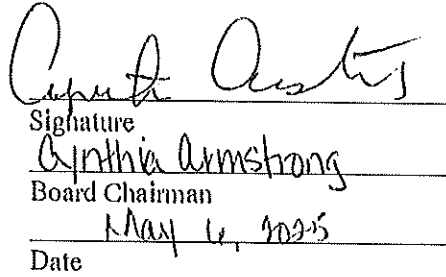 Signature
Cynthia Armstrong
Board Chairman
May 6, 2025
Date